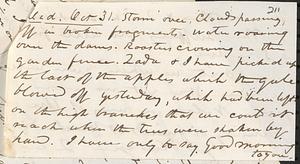 Wed. Oct 31. Storm over, Clouds passing
off in broken fragments. Water roaring
over the dams. Rooster crowing on the
garden fence. Zada & I have picked up
the last of the apples which the gale
blowed off yesterday, which had been left
on the high branches that we could not
reach when the trees were shaken by
hand. I have only to say good morning
to you